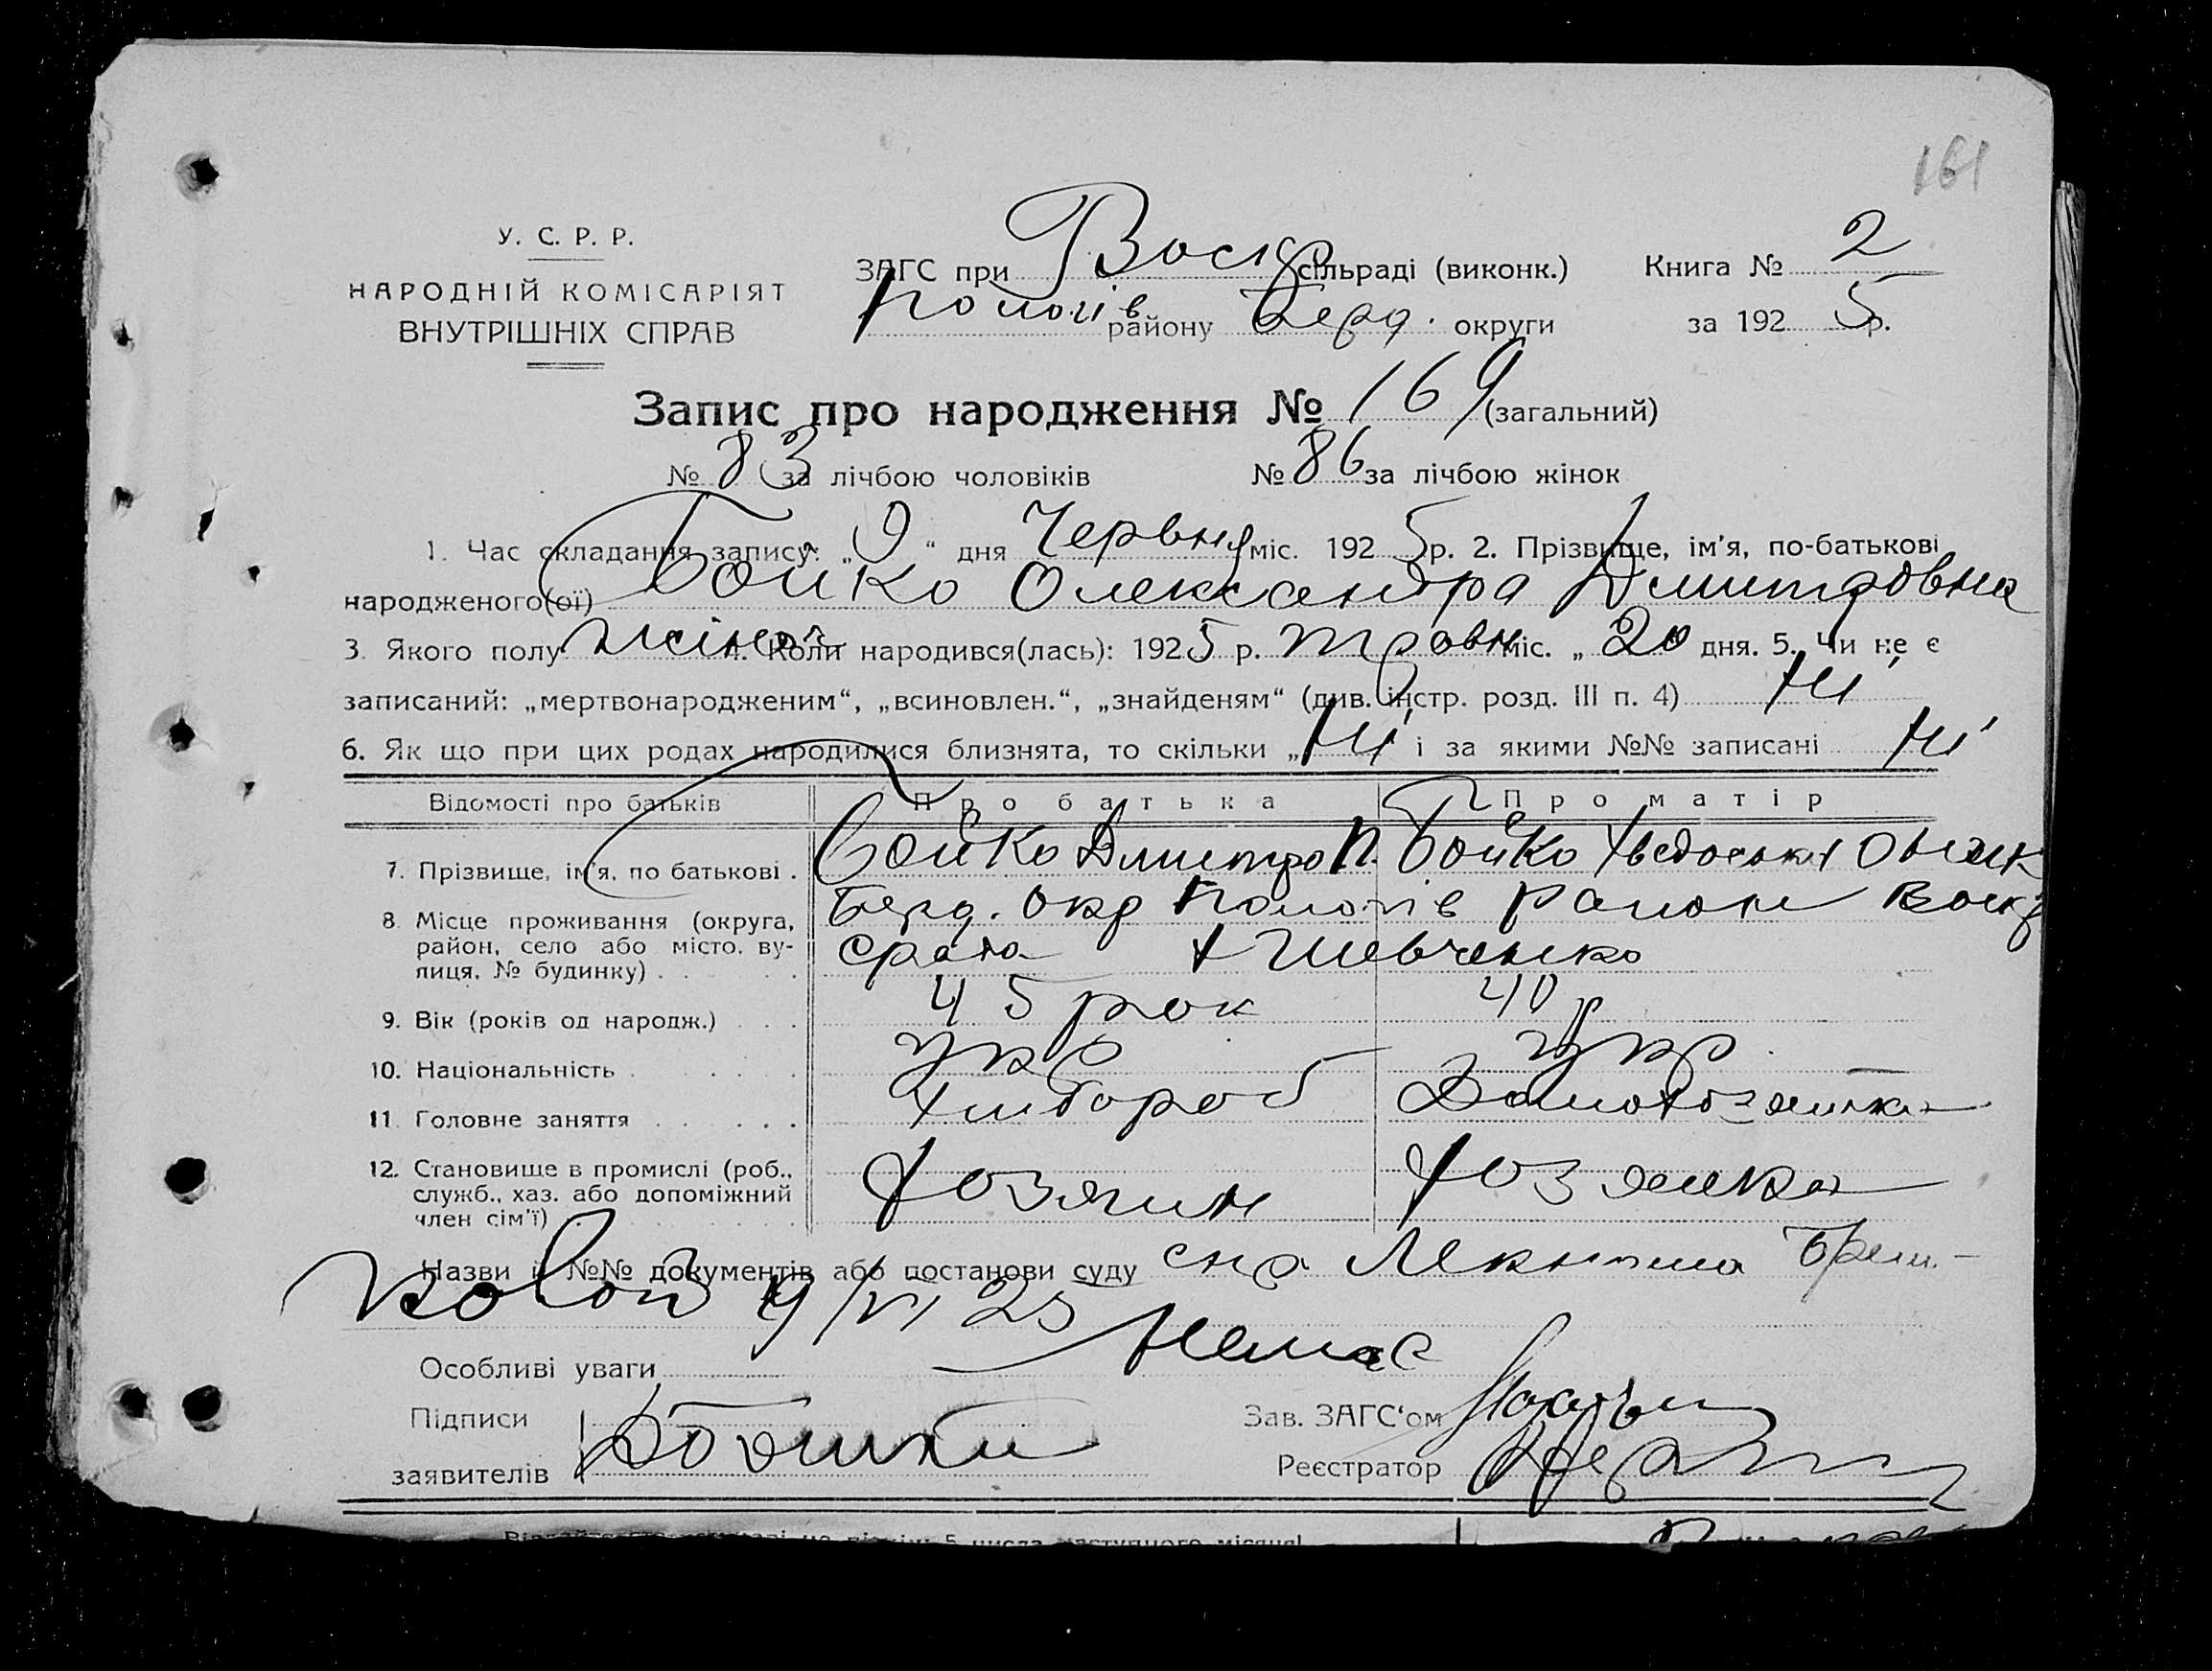 161
У. С. Р. Р.
НАРОДНІЙ КОМІСАРІЯТ
ВНУТРІШНІХ СПРАВ
ЗАГС при Воскр сільраді (виконк.) Книга № 2
Пологів району Берд. округи за 1925 р.
Запис про народження № 169 (загальний)
№ 83 за лічбою чоловіків № 86 за лічбою жінок
1. Час складання запису: „9“ дня Червня міс. 1925 р. 2. Прізвище, ім’я, по-батькові
народженого(ої) Бойко Олександра Дмитровна
3. Якого полу жіноч 4. Коли народився(лась): 1925 р. травн міс. „20 дня. 5. Чи не є
записаний: „мертвонародженим“, „всиновлен.“, „знайденям“ (див. інстр. розд. III п. 4) Ні
6. Як що при цих родах народилися близнята, то скільки „Ні і за якими №№ записані Ні
Відомості про батьків Про батька Про матір
7. Прізвище, ім’я, по батькові . Бойко Дмитро П. Бойко Хведоська
8. Місце проживання (округа, район, село або місто, вулиця, № будинку) . . Берд. Окр Пологів Район Воскр
Срада х Шевченко
9. Вік (років од народж.) . . . 45 рок 40 р
10. Національність . . . . . укр укр.
11. Головне заняття . . . . . Хлібороб Домохозяйка
12. Становище в промислі (роб., служб., хаз. або допоміжний член сім’ї) . Хозяин Хозяйка
Назви й №№ документів або постанови суду
9/VI 25
Особливі уваги Немає
Підписи
заявителів
Зав. ЗАГС‘ом
Реєстратор
5 числа наступного місяця!